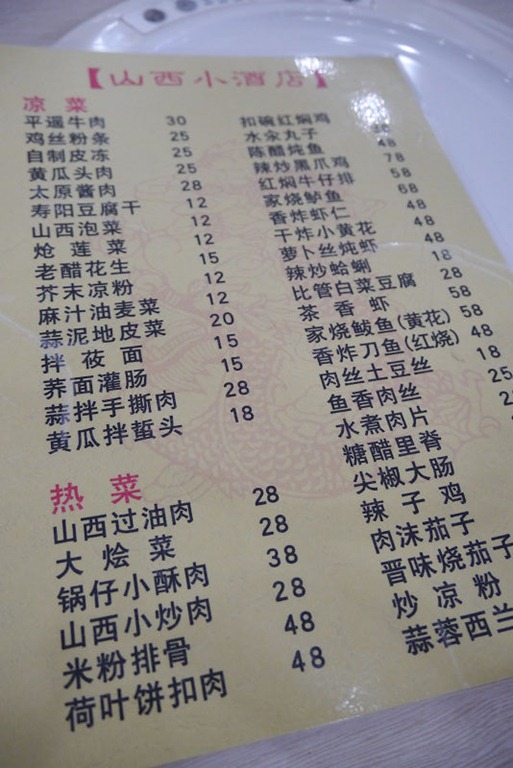 【山西小酒店】
凉菜
平遥牛肉 30
鸡丝粉条 25
自制皮冻 25
黄瓜头肉 25
太原酱肉 28
寿阳豆腐干 12
山西泡菜 12
炝莲菜 12
老醋花生 15
芥末凉粉 12
麻汁油麦菜 12
蒜泥地皮菜 20
拌莜面 15
荞面灌肠 15
蒜拌手撕肉 28
黄瓜拌蜇头 18
热菜
山西过油肉 28
大烩菜 28
锅仔小酥肉 38
山西小炒肉 28
米粉排骨 48
荷叶饼扣肉 48
扣碗红焖鸡
水汆丸子
陈醋炖鱼 48
辣炒黑爪鸡 78
红焖牛仔排 58
家烧鲈鱼 68
香炸虾仁 48
干炸小黄花 48
萝卜丝炖虾 48
辣炒蛤蜊 18
比管白菜豆腐 28
茶香虾 58
家烧鲅鱼(黄花) 58
香炸刀鱼(红烧) 48
肉丝土豆丝 18
鱼香肉丝 25
水煮肉片
糖醋里脊
尖椒大肠
辣子鸡
肉沫茄子
晋味烧茄子
炒凉粉
蒜蓉西兰